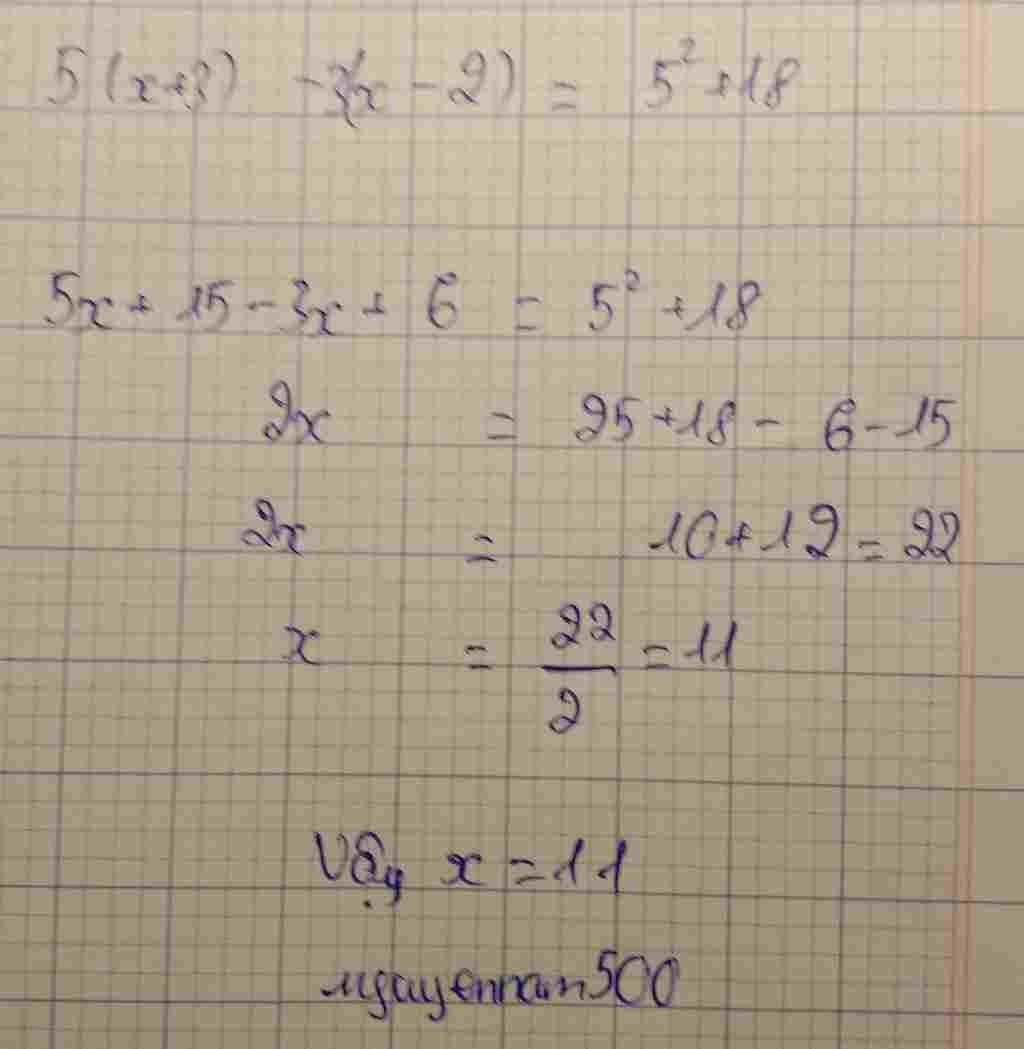 5(x+3) -3(x - 2) = 5² +18
5x + 15 - 3x + 6 = 5² +18
2x = 25 +18 - 6 - 15
2x = 10 + 12 = 22
x = 22/2 = 11
Vậy x = 11
nguyennam500